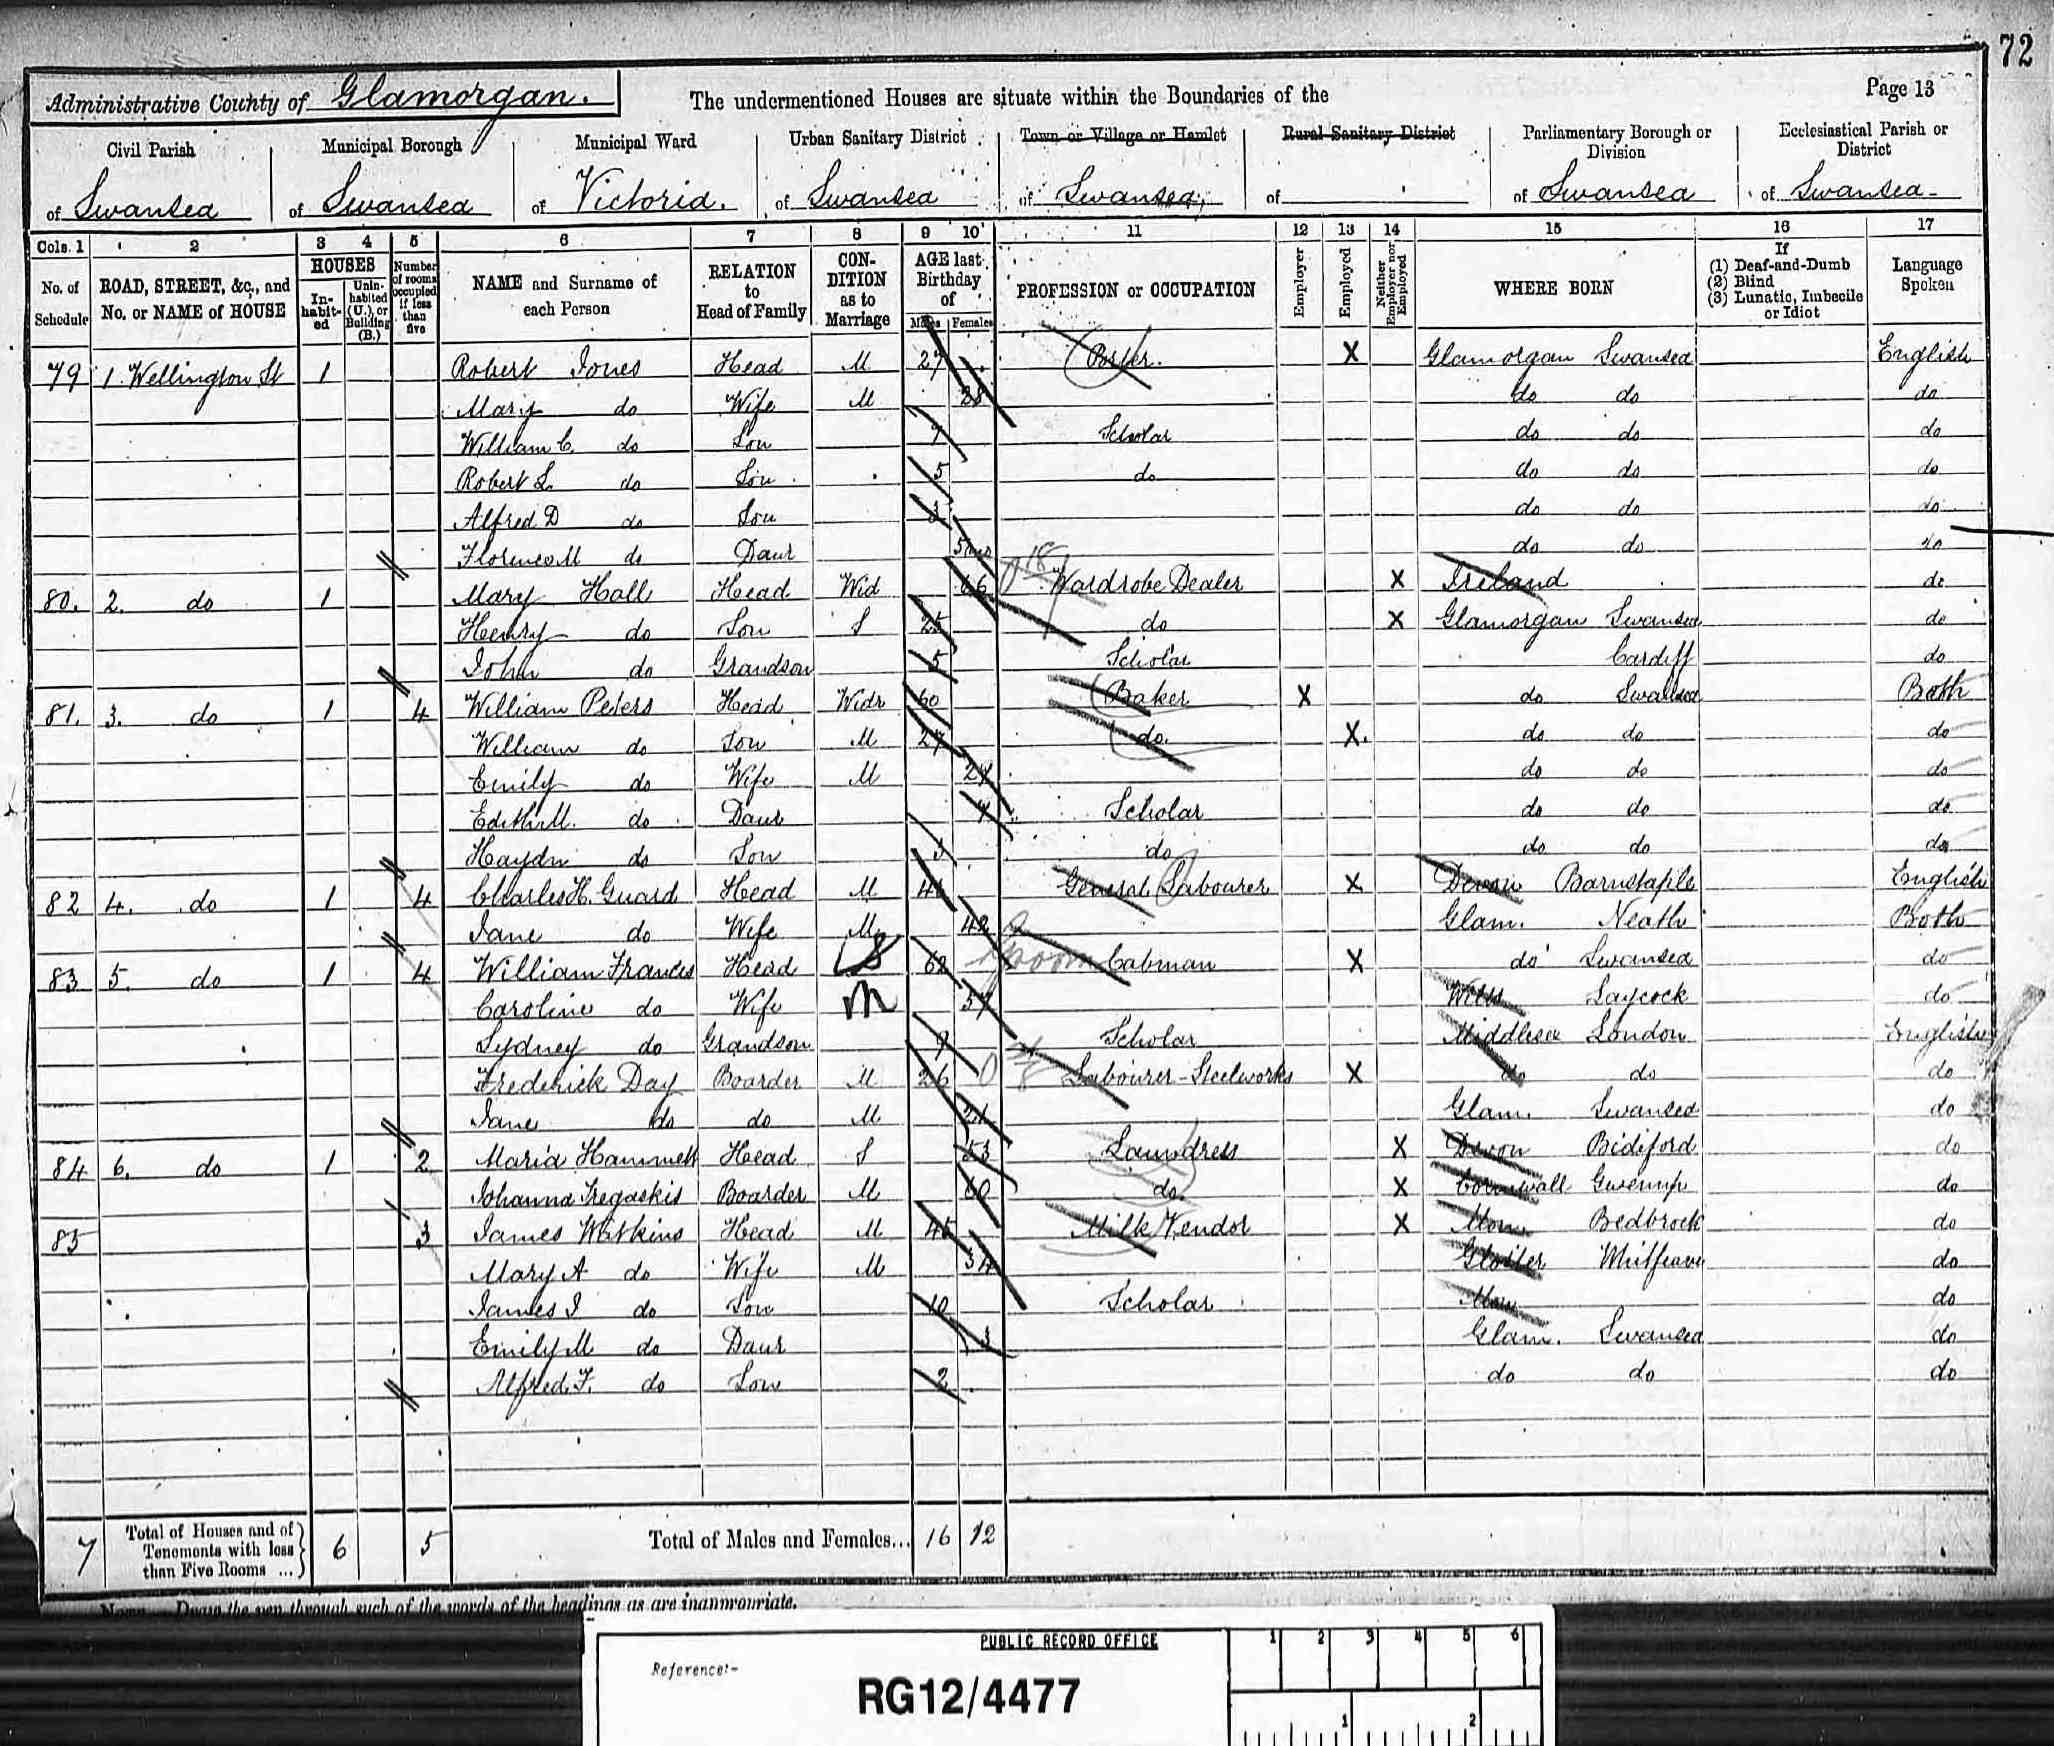 72
Administrative County of Glamorgan. The undermentioned Houses are situate within the Boundaries of the Page 13
Civil Parish Municipal Borough Municipal Ward Urban Sanitary District Town or Village or Hamlet Rural Sanitary District Parliamentary Borough or Division Ecclesiastical Parish or District
of Swansea of Swansea of Victoria. of Swansea of Swansea, of of Swansea of Swansea
Cols. 1 2 3 4 5 6 7 8 9 10 11 12 13 14 15 16 17
No. of Schedule ROAD, STREET, &c., and No. or NAME of HOUSE HOUSES Inhabited Uninhabited (U.), or Building (B.) Number of rooms occupied if less than five NAME and Surname of each Person RELATION to Head of Family CONDITION as to Marriage AGE last Birthday of Males Females PROFESSION or OCCUPATION Employer Employed Neither Employer nor Employed WHERE BORN If (1) Deaf-and-Dumb (2) Blind (3) Lunatic, Imbecile or Idiot Language Spoken
79 1 Wellington St 1 Robert Jones Head M 27 Porter. X Glamorgan Swansea English
Mary do Wife M 28 do do do
William C. do Son 7 Scholar do do do
Robert L. do Son 5 do do do do
Alfred D do Son 3 do do do
Florence M do Daur 5 mos do do do
80. 2. do 1 Mary Hall Head Wid 66 Wardrobe Dealer X Ireland do
Henry do Son S 25 do X Glamorgan Swansea do
John do Grandson 5 Scholar Cardiff do
81. 3. do 1 4 William Peters Head Widr 60 Baker X do Swansea Both
William do Son M 27 do. X. do do do
Emily do Wife M 27 do do do
Edith M. do Daur 4 Scholar do do do
Haydn do Son 3 do do do do
82 4. do 1 4 Charles H. Guard Head M General Labourer X Devon Barnstaple English
Jane do Wife M 42 Glam. Neath Both
83 5. do 1 4 William Frances Head 62 Groom Cabman X do Swansea do
Caroline do Wife M 57 Wilts Laycock do
Sydney do Grandson 9 Scholar Middlesex London English
Frederick Day Boarder M 26 Labourer-Steelworks X do do do
Jane do do M 21 Glam. Swansea do
84 6. do 1 2 Maria Hammett Head S 53 Laundress X Devon Bideford do
Johanna Tregaskis Boarder M 60 do. X Cornwall Gwennp do
85 3 James Watkins Head M 45 Milk Vendor X Mon Bedbrock do
Mary A do Wife M 34 Gloster do
James J do Son 10 Scholar Mon do
Emily M do Daur 3 Glam. Swansea do
Alfred F. do Son 2 do do do
7 Total of Houses and of Tenements with less than Five Rooms ... 6 5 Total of Males and Females... 16 12
Note.—Draw the pen through such of the words of the headings as are inappropriate.
PUBLIC RECORD OFFICE 1 2 3 4 5 6
Reference:-
RG12/4477
1 2